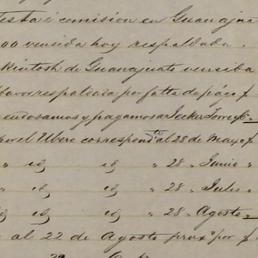 esta i comision en Guanajua
00 vencida hoy respaldada
Kintosh de Guanajuato vencida
respaldada por falta de pago
endosamos y pagamos a
correspond.te al 28 de Mayo
" id id " 28 " Junio "
" id id " 28 " Julio "
" id id " 28 " Agosto
al 22 de Agosto prox.o por